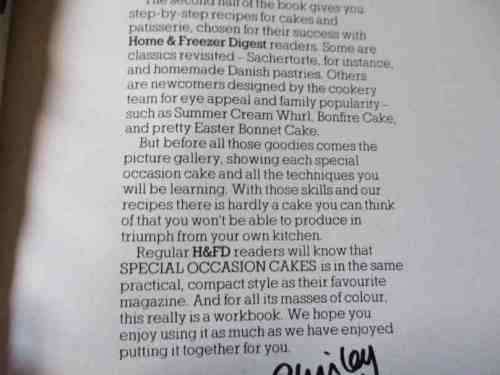 The second half of the book gives you
step-by-step recipes for cakes and
patisserie, chosen for their success with
Home & Freezer Digest readers. Some are
classics revisited – Sachertorte, for instance,
and homemade Danish pastries. Others
are newcomers designed by the cookery
team for eye appeal and family popularity –
such as Summer Cream Whirl, Bonfire Cake,
and pretty Easter Bonnet Cake.
But before all those goodies comes the
picture gallery, showing each special
occasion cake and all the techniques you
will be learning. With those skills and our
recipes there is hardly a cake you can think
of that you won't be able to produce in
triumph from your own kitchen.
Regular H&FD readers will know that
SPECIAL OCCASION CAKES is in the same
practical, compact style as their favourite
magazine. And for all its masses of colour,
this really is a workbook. We hope you
enjoy using it as much as we have enjoyed
putting it together for you.